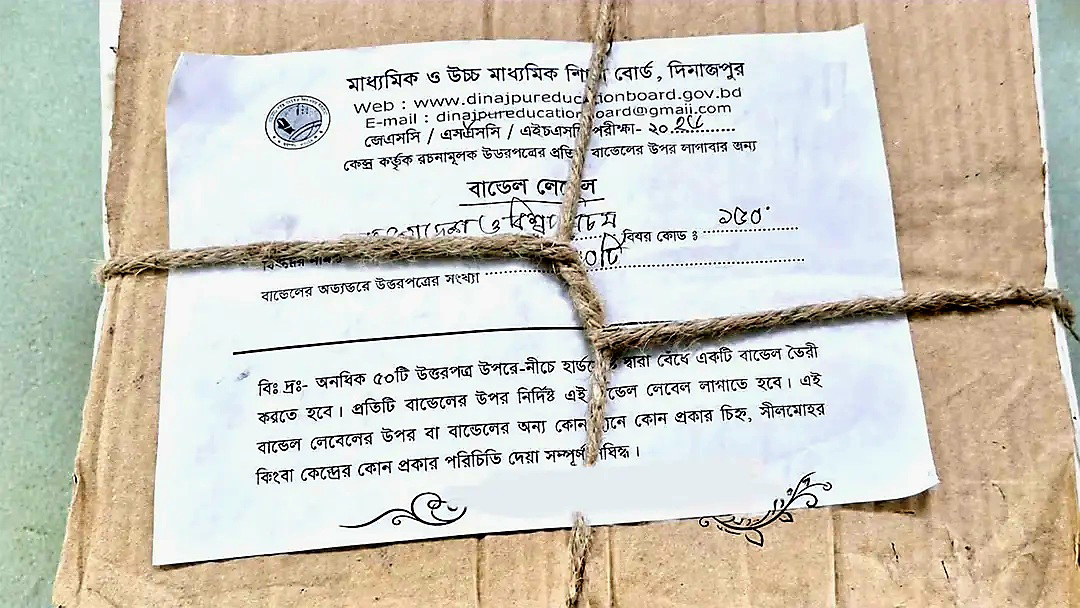 মাধ্যমিক ও উচ্চ মাধ্যমিক বোর্ড, দিনাজপুর
Web : www.dinajpureducationboard.gov.bd
E-mail : dinajpureducationboard@gmail.com
জেএসসি / এসএসসি / এইচএসসি পরীক্ষা- ২০
কেন্দ্র কর্তৃক রচনামূলক উত্তরপত্রের প্রতিটি বান্ডেলের উপর লাগাবার জন্য
বান্ডেল লেবেল
ও বিশ্বপরিচয়
বিষয় কোড ঃ ১৫০
বান্ডেলের অভ্যন্তরে উত্তরপত্রের সংখ্যা
বিঃ দ্রঃ- অনধিক ৫০টি উত্তরপত্র উপরে-নীচে দ্বারা বেঁধে একটি বান্ডেল তৈরী
করতে হবে। প্রতিটি বান্ডেলের উপর নির্দিষ্ট এই বান্ডেল লেবেল লাগাতে হবে। এই
বান্ডেল লেবেলের উপর বা বান্ডেলের অন্য কোন স্থানে কোন প্রকার চিহ্ন, সীলমোহর
কিংবা কেন্দ্রের কোন প্রকার পরিচিতি দেয়া সম্পূর্ণ নিষিদ্ধ।